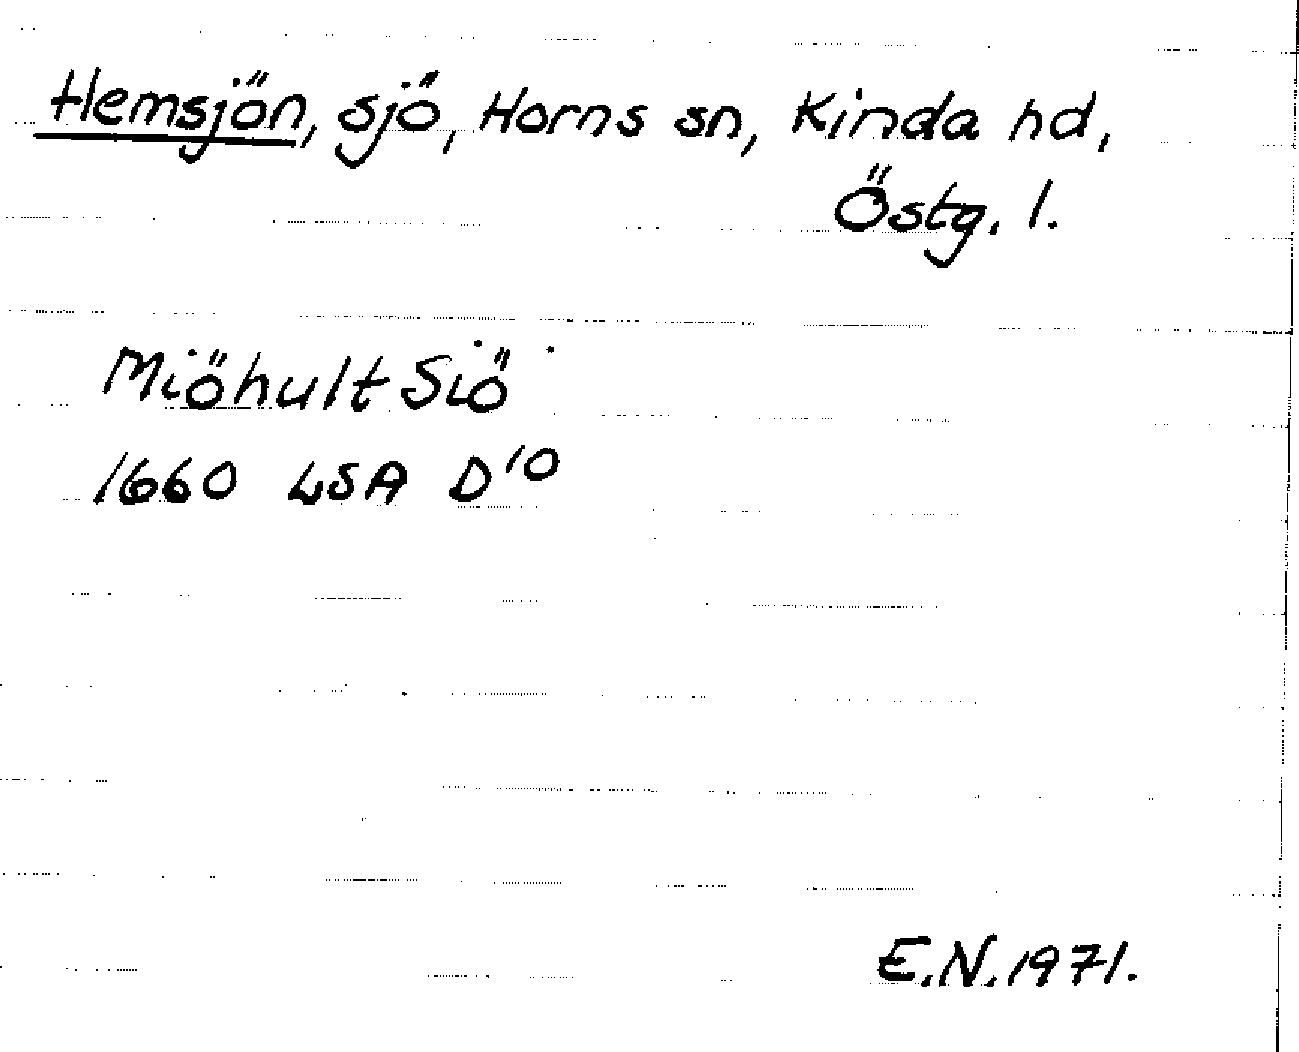 Hemsjön, sjö, Horns sn, Kinda hd,
Östg. l.
Miöhult Siö
1660 LSA D10
E.N. 1971.